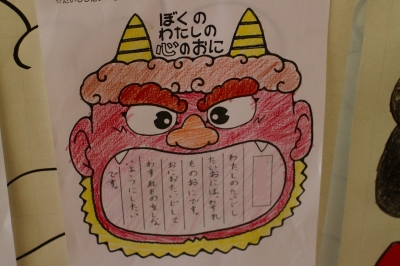 ぼくの
わたしの
心のおに
わたしのたいじし
たいおには、わすれ
ものおにです。
おにおたいじして
わすれものをしな
いようにしたい
です。